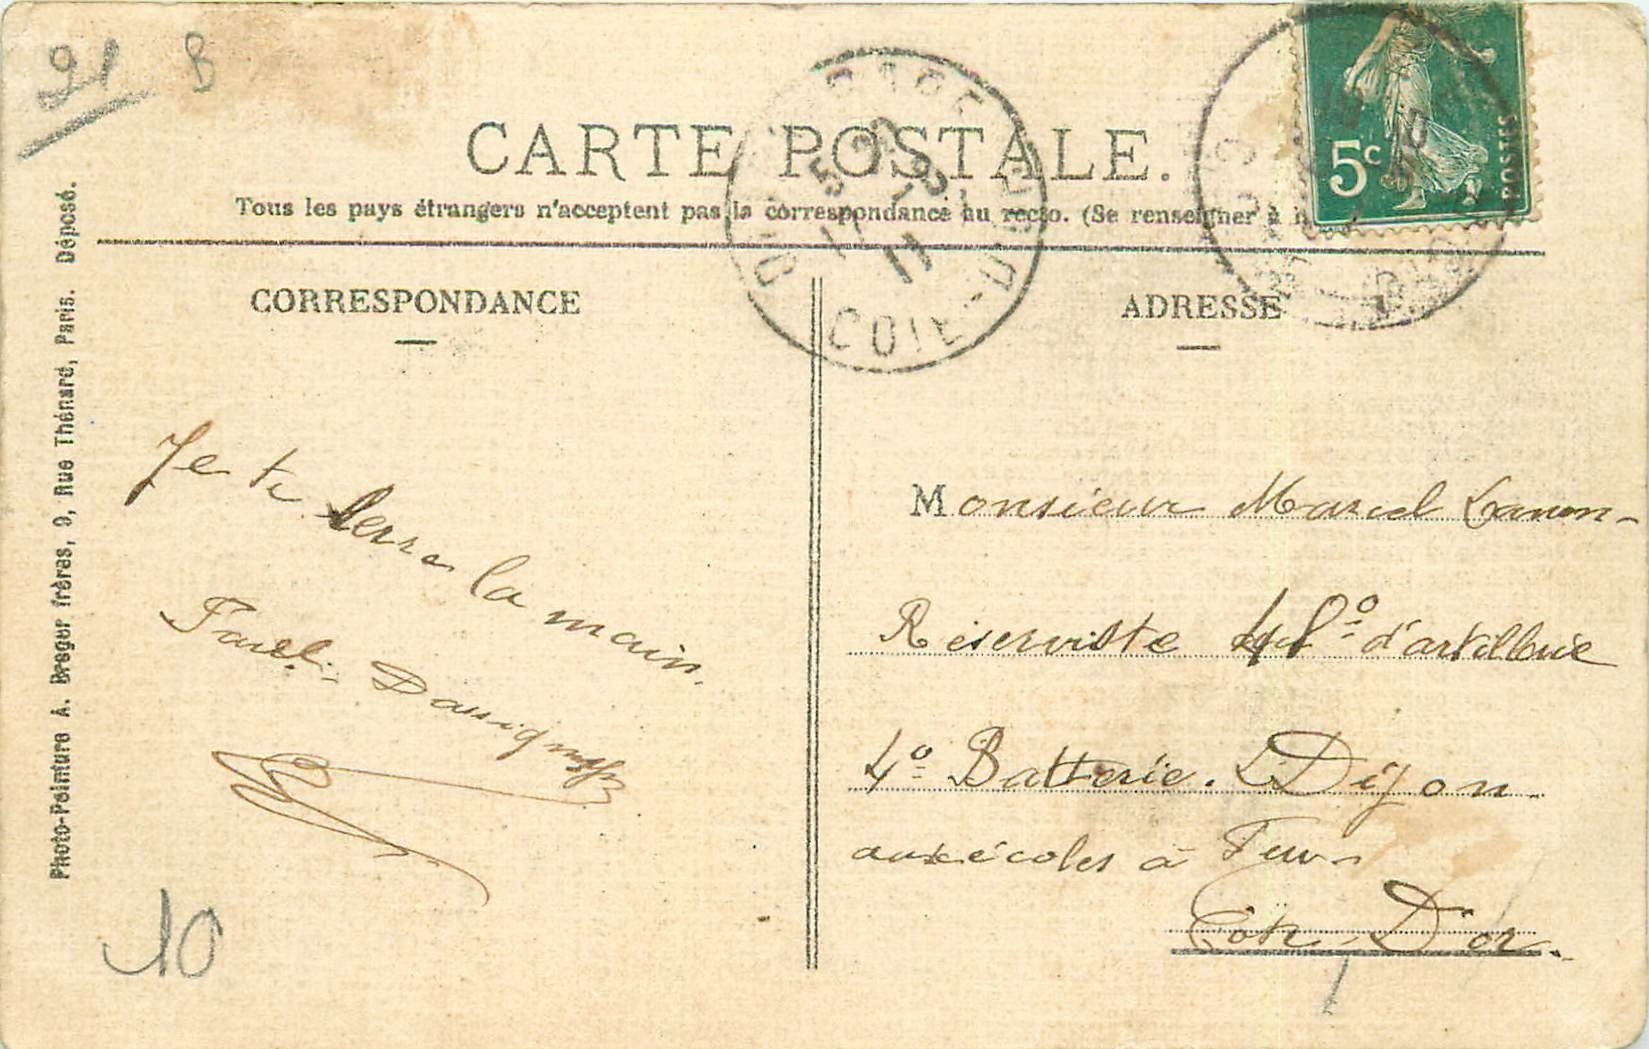 21 B
CARTE POSTALE.
Tous les pays étrangers n'acceptent pas la correspondance au recto. (Se renseigner à
5c
POSTES
COTE-D'OR
CORRESPONDANCE
ADRESSE
Photo-Peinture A. Breger frères, 9, Rue Thénard, Paris. Déposé.
Je te serre la main
Monsieur Marcel
Réserviste 48º d'artillerie
4º Batterie. Dijon
aux écoles à
Côte-D'or.
10